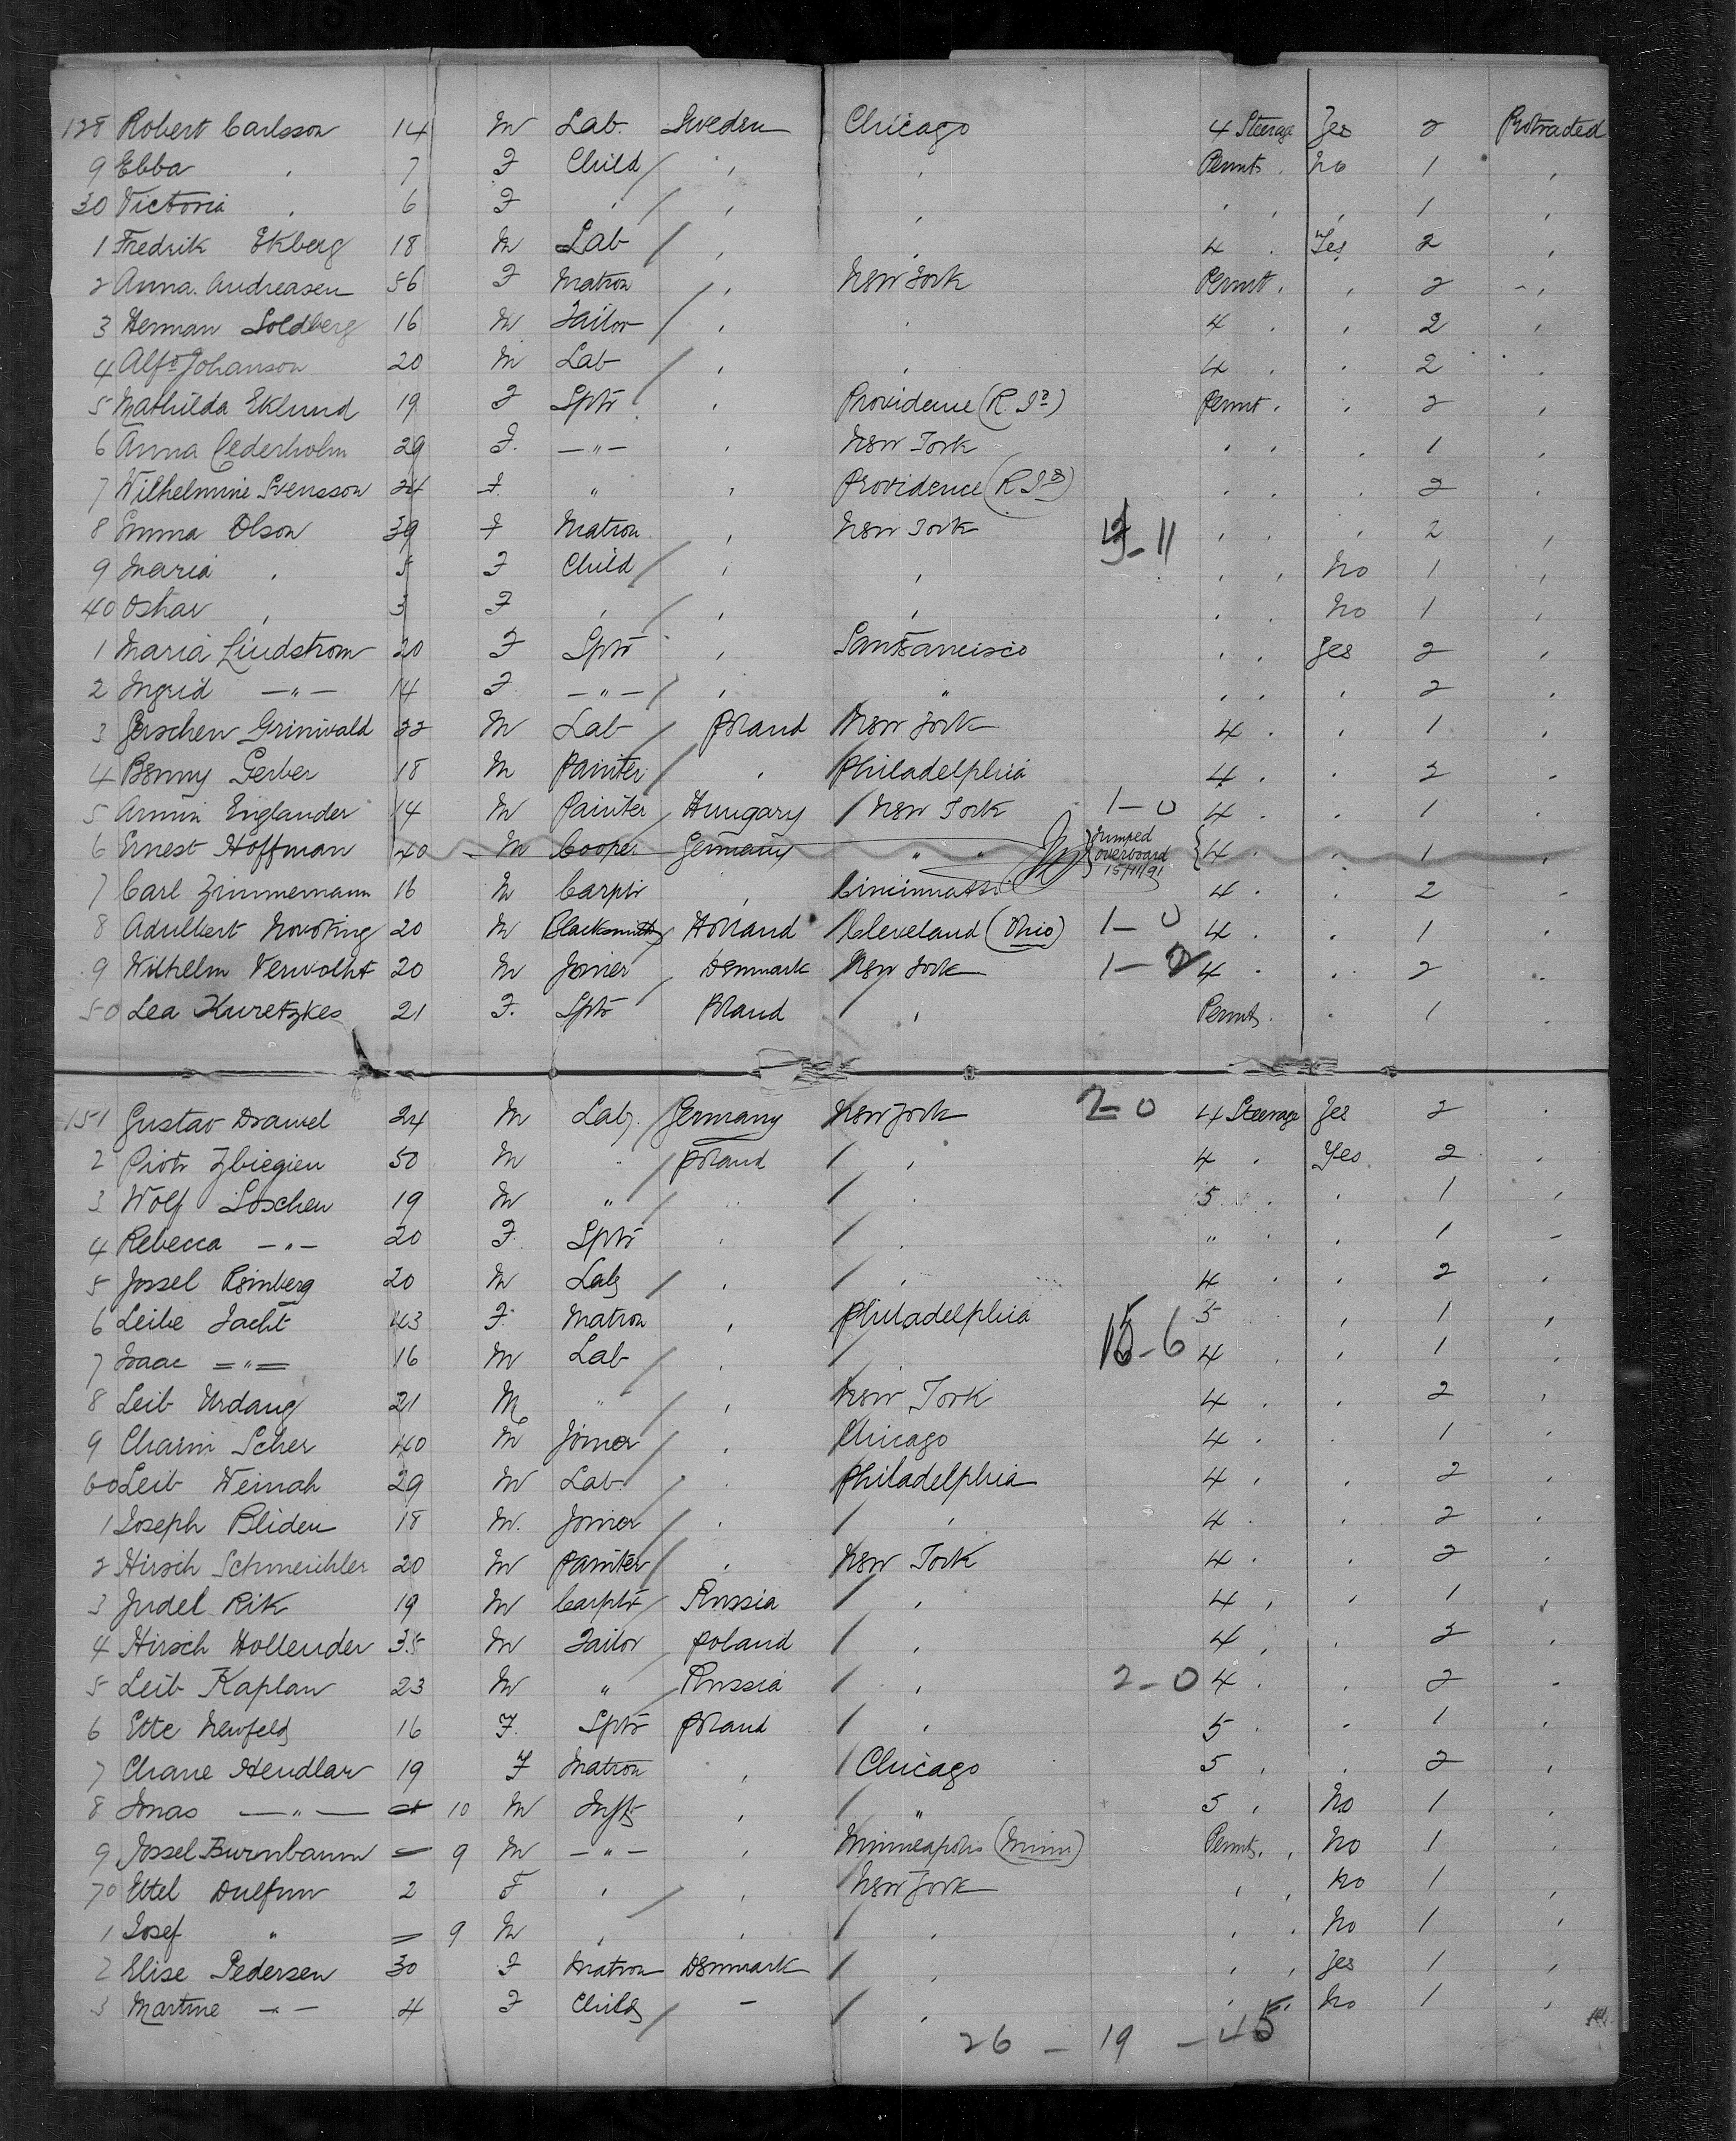 128 Robert Carlsson 14 M Lab. Sweden Chicago 4 Steerage Yes 2 Protracted
9 Ebba " 7 F Child " " Permt " No 1 "
30 Victoria " 6 F " " " " " " 1 "
1 Fredrik Ekberg 18 M Lab " " 4 " Yes 2 "
2 Anna Andreasen 56 F Matron " New York Permt " " 2 "
3 Herman Soldberg 16 M Tailor " " 4 " " 2 "
4 Alfd Johanson 20 M Lab " " 4 " " 2 "
5 Mathilda Eklund 19 F Sptr " Providence (R. Id) Permt " " 2 "
6 Anna Cederholm 29 F. —"— " New York " " " 1 "
7 Wilhelmine Svensson 24 F. " " Providence (R Id) " " " 2 "
8 Emma Olson 39 F Matron " New York 11 " " " 2 "
9 Maria " 5 F Child " " " " No 1 "
40 Oskar " 3 F " " " " No 1 "
1 Maria Lindstrom 20 F Sptr " San Francisco " " Yes 2 "
2 Ingrid —"— 14 F —"— " " " " " 2 "
3 Grinwald 22 M Lab Poland New York 4 " " 1 "
4 Benny Gerber 18 M Painter " Philadelphia 4 " " 2 "
5 Armin Englander 14 M Painter Hungary New York 1—0 4 " " 1 "
6 Ernest Hoffman 40 M Cooper Germany " " Jumped overboard 15/11/91 4 " " 1 "
7 Carl Zimmermann 16 M Carptr " Cincinnatti 4 " " 2 "
8 Adulbert 20 M Blacksmith Holland Cleveland (Ohio) 1—0 4 " " 1 "
9 Wilhelm Verwolht 20 M Joiner Denmark New York 1—0 4 " " 2 "
50 Lea Kuretzkes 21 F. Sptr Poland " Permt " " 1 "
151 Gustav Drawel 24 M Lab. Germany New York 2—0 4 Steerage Yes 2 "
2 Piotr Zbiegien 50 M " Poland " 4 " Yes 2 "
3 Wolf Soschen 19 M " " " 5 " " 1 "
4 Rebecca —"— 20 F. Sptr " " " " " 1 "
5 Jossel Reinberg 20 M Lab " " 4 " " 2 "
6 Leibe Jacht 43 F. Matron " Philadelphia 5 " 1 "
7 Isaac ="= 16 M Lab " " 15—6 4 " " 1 "
8 Leib Urdang 21 M " " New York 4 " " 2 "
9 Chaim Scher 40 M Joiner " Chicago 4 " " 1 "
60 Leib Weinah 29 M Lab " Philadelphia 4 " " 2 "
1 Joseph Bliden 18 M. Joiner " " 4 " " 2 "
2 Hirsch Schmeichler 20 M Painter " New York 4 " " 2 "
3 Judel Rik 19 M Carptr Russia " 4 " " 1 "
4 Hirsch Hollender 35 M Tailor Poland " 4 " " 2 "
5 Leib Kaplan 23 M " Russia " 2—0 4 " " 2 "
6 Ette Neufeld 16 F. Sptr Poland " 5 " " 1 "
7 Chane Hendlar 19 F Matron " Chicago 5 " " 2 "
8 Jonas —"— 10 M Inft " " 5 " No 1 "
9 Jossel Burnbaum — 9 M —"— " Minneapolis (Minn) Permt " " No 1 "
70 Ettel Dulfum 2 F " " New York " " No 1 "
1 Josef " — 9 M " " " " " No 1 "
2 Elise Pedersen 30 F Matron Denmark " " " Yes 1 "
3 Martine —"— 4 F Child — " " " No 1 "
26 — 19 — 45